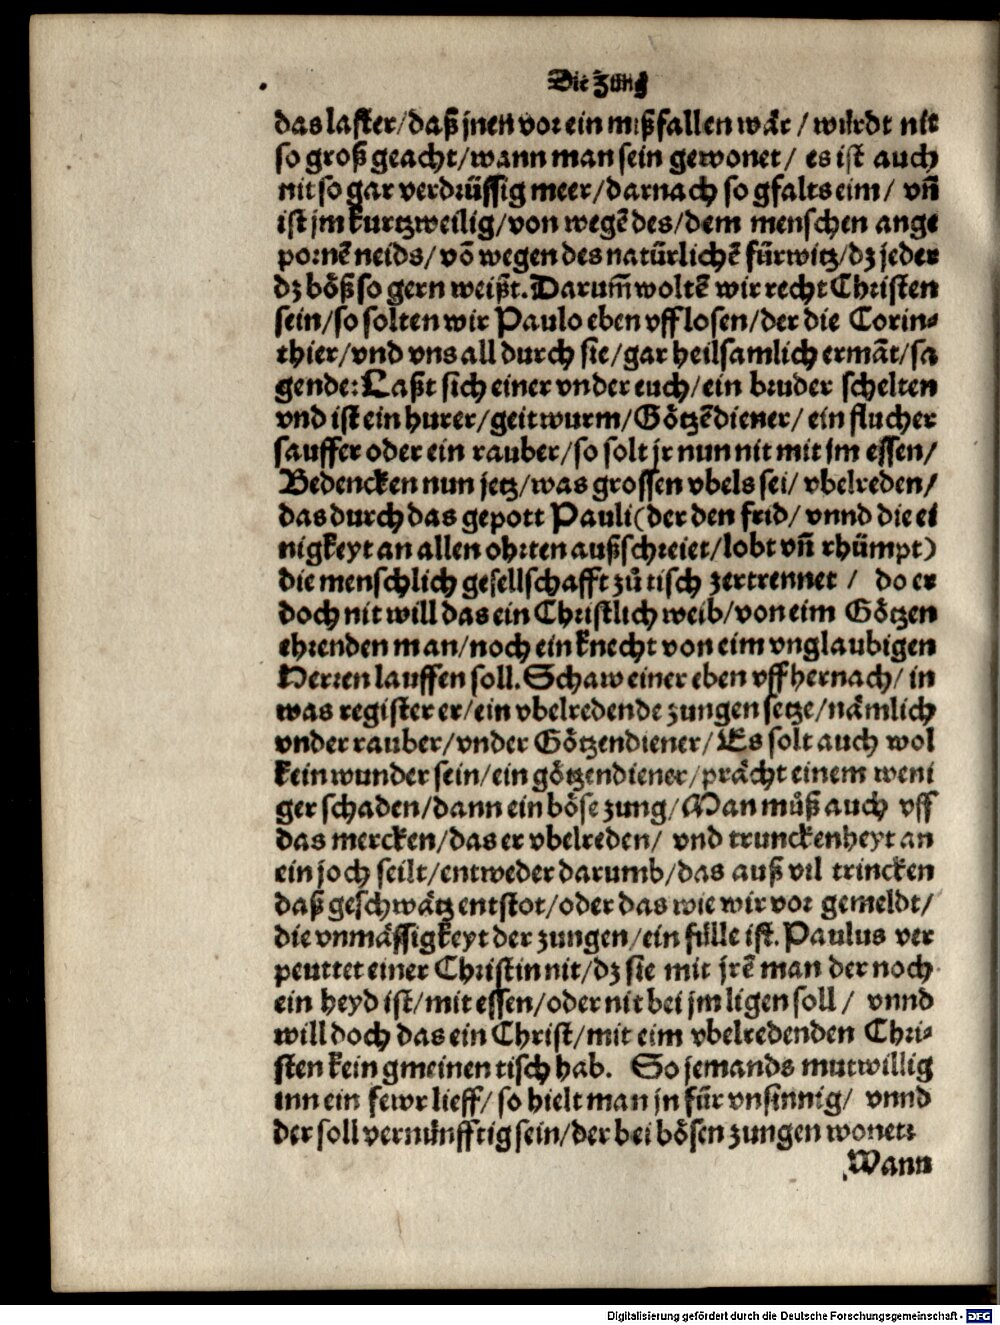 Die Zung
das laster/daß jnen vor ein mißfallen wär/würdt nit
so groß geacht/wann man sein gewonet/ es ist auch
nit so gar verdrüssig meer/darnach so gfalts eim/ vñ
ist jm kurtzweilig/von wegẽ des/dem menschen ange
pornẽ neids/võ wegen des natürlichẽ fürwitz/dz jeder
dz böß so gern weißt. Darum̃ woltẽ wir recht Christen
sein/so solten wir Paulo eben vff losen/der die Corin⸗
thier/vnd vns all durch sie/gar heilsamlich ermãt/sa
gende: Laßt sich einer vnder euch/ein bruder schelten
vnd ist ein hurer/geitwurm/Götzẽdiener/ein flucher
sauffer oder ein rauber/so solt jr nun nit mit jm essen/
Bedencken nun jetz/was grossen vbels sei/vbelreden/
das durch das gepott Pauli(der den frid/vnnd die ei
nigkeyt an allen ohrten außschreiet/lobt vñ rhümpt)
die menschlich gesellschafft zů tisch zertrennet / do er
doch nit will das ein Christlich weib/von eim Götzen
ehrenden man/noch ein knecht von eim vnglaubigen
Herren lauffen soll. Schaw einer eben vff hernach/in
was register er/ein vbelredende zungen setze/nämlich
vnder rauber/vnder Götzendiener/Es solt auch wol
kein wunder sein/ein götzendiener/prächt einem weni
ger schaden/dann ein böse zung/Man můß auch vff
das mercken/das er vbelreden/ vnd trunckenheyt an
ein joch seilt/entweder darumb/das auß vil trincken
daß geschwätz entstot/oder das wie wir vor gemeldt/
die vnmässigkeyt der zungen/ein fülle ist. Paulus ver
peuttet einer Christin nit/dz sie mit jrẽ man der noch
ein heyd ist/mit essen/oder nit bei jm ligen soll / vnnd
will doch das ein Christ/mit eim vbelredenden Chri⸗
sten kein gmeinen tisch hab. So jemands mutwillig
inn ein fewr lieff/so hielt man jn für vnsinnig/ vnnd
der soll vernünfftig sein/der bei bösen zungen wonet:
Wann
Digitalisierung gefördert durch die Deutsche Forschungsgemeinschaft - DFG